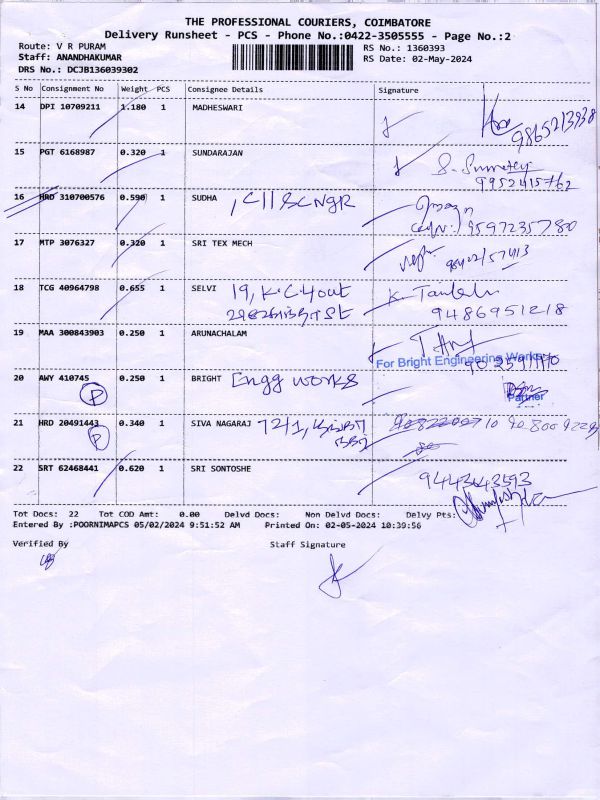 THE PROFESSIONAL COURIERS, COIMBATORE
Delivery Runsheet - PCS - Phone No.:0422-3505555 - Page No.:2
Route: V R PURAM
RS No.: 1360393
Staff: ANANDHAKUMAR
RS Date: 02-May-2024
DRS No.: DCJB136039302
S No Consignment No Weight PCS Consignee Details Signature
14 DPI 10709211 1.180 1 MADHESWARI
9865213938
15 PGT 6168987 0.320 1 SUNDARAJAN
9952415762
16 HRD 310700576 0.590 1 SUDHA
9597235780
17 MTP 3076327 0.320 1 SRI TEX MECH
18 TCG 40964798 0.655 1 SELVI 19, K.C Layout
9486951218
19 MAA 300843903 0.250 1 ARUNACHALAM
For Bright Engineering Works
20 AWY 410745 0.250 1 BRIGHT Engg works
P
Partner
21 HRD 20491443 0.340 1 SIVA NAGARAJ 72/1,
P
22 SRT 62468441 0.620 1 SRI SONTOSHE
9443643593
Tot Docs: 22 Tot COD Amt: 0.00 Delvd Docs: Non Delvd Docs: Delvy Pts:
Entered By :POORNIMAPCS 05/02/2024 9:51:52 AM Printed On: 02-05-2024 10:39:56
Verified By Staff Signature